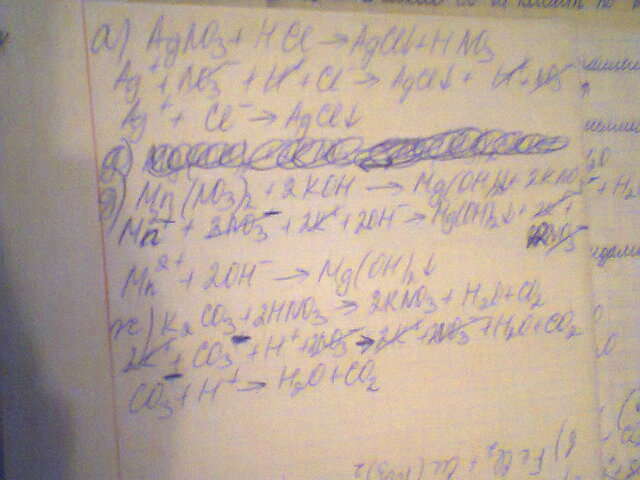 а) AgNO3 + HCl → AgCl↓ + HNO3
Ag+ + NO3- + H+ + Cl- → AgCl↓ + H+ + NO3-
Ag+ + Cl- → AgCl↓
д) Mn(NO3)2 + 2KOH → Mg(OH)2↓ + 2KNO3
Mn2+ + 2NO3- + 2K+ + 2OH- → Mg(OH)2↓ + 2K+ +
NO3-
Mn2+ + 2OH- → Mg(OH)2↓
ж) K2CO3 + 2HNO3 → 2KNO3 + H2O + CO2
2K+ + CO3- + H+ + 2NO3- → 2K+ + 2NO3- + H2O + CO2
CO3- + H+ → H2O + CO2